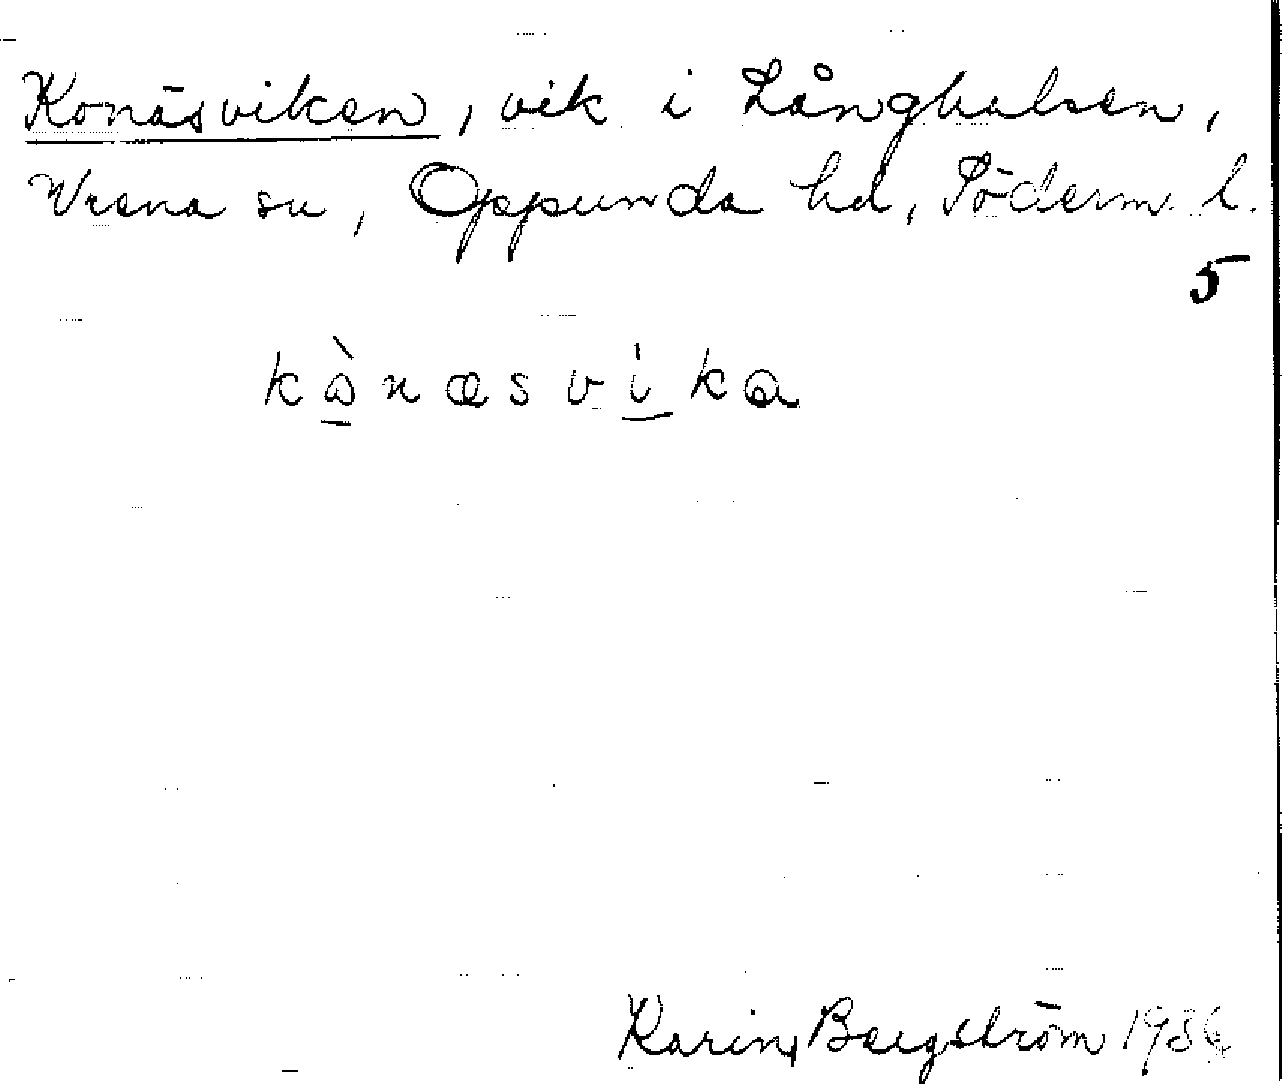 Konäsviken, vik i Långhalsen,
Vrena sn, Oppunda hd, Söderm. l.
5
kònæsvika
Karin Bergström 1936